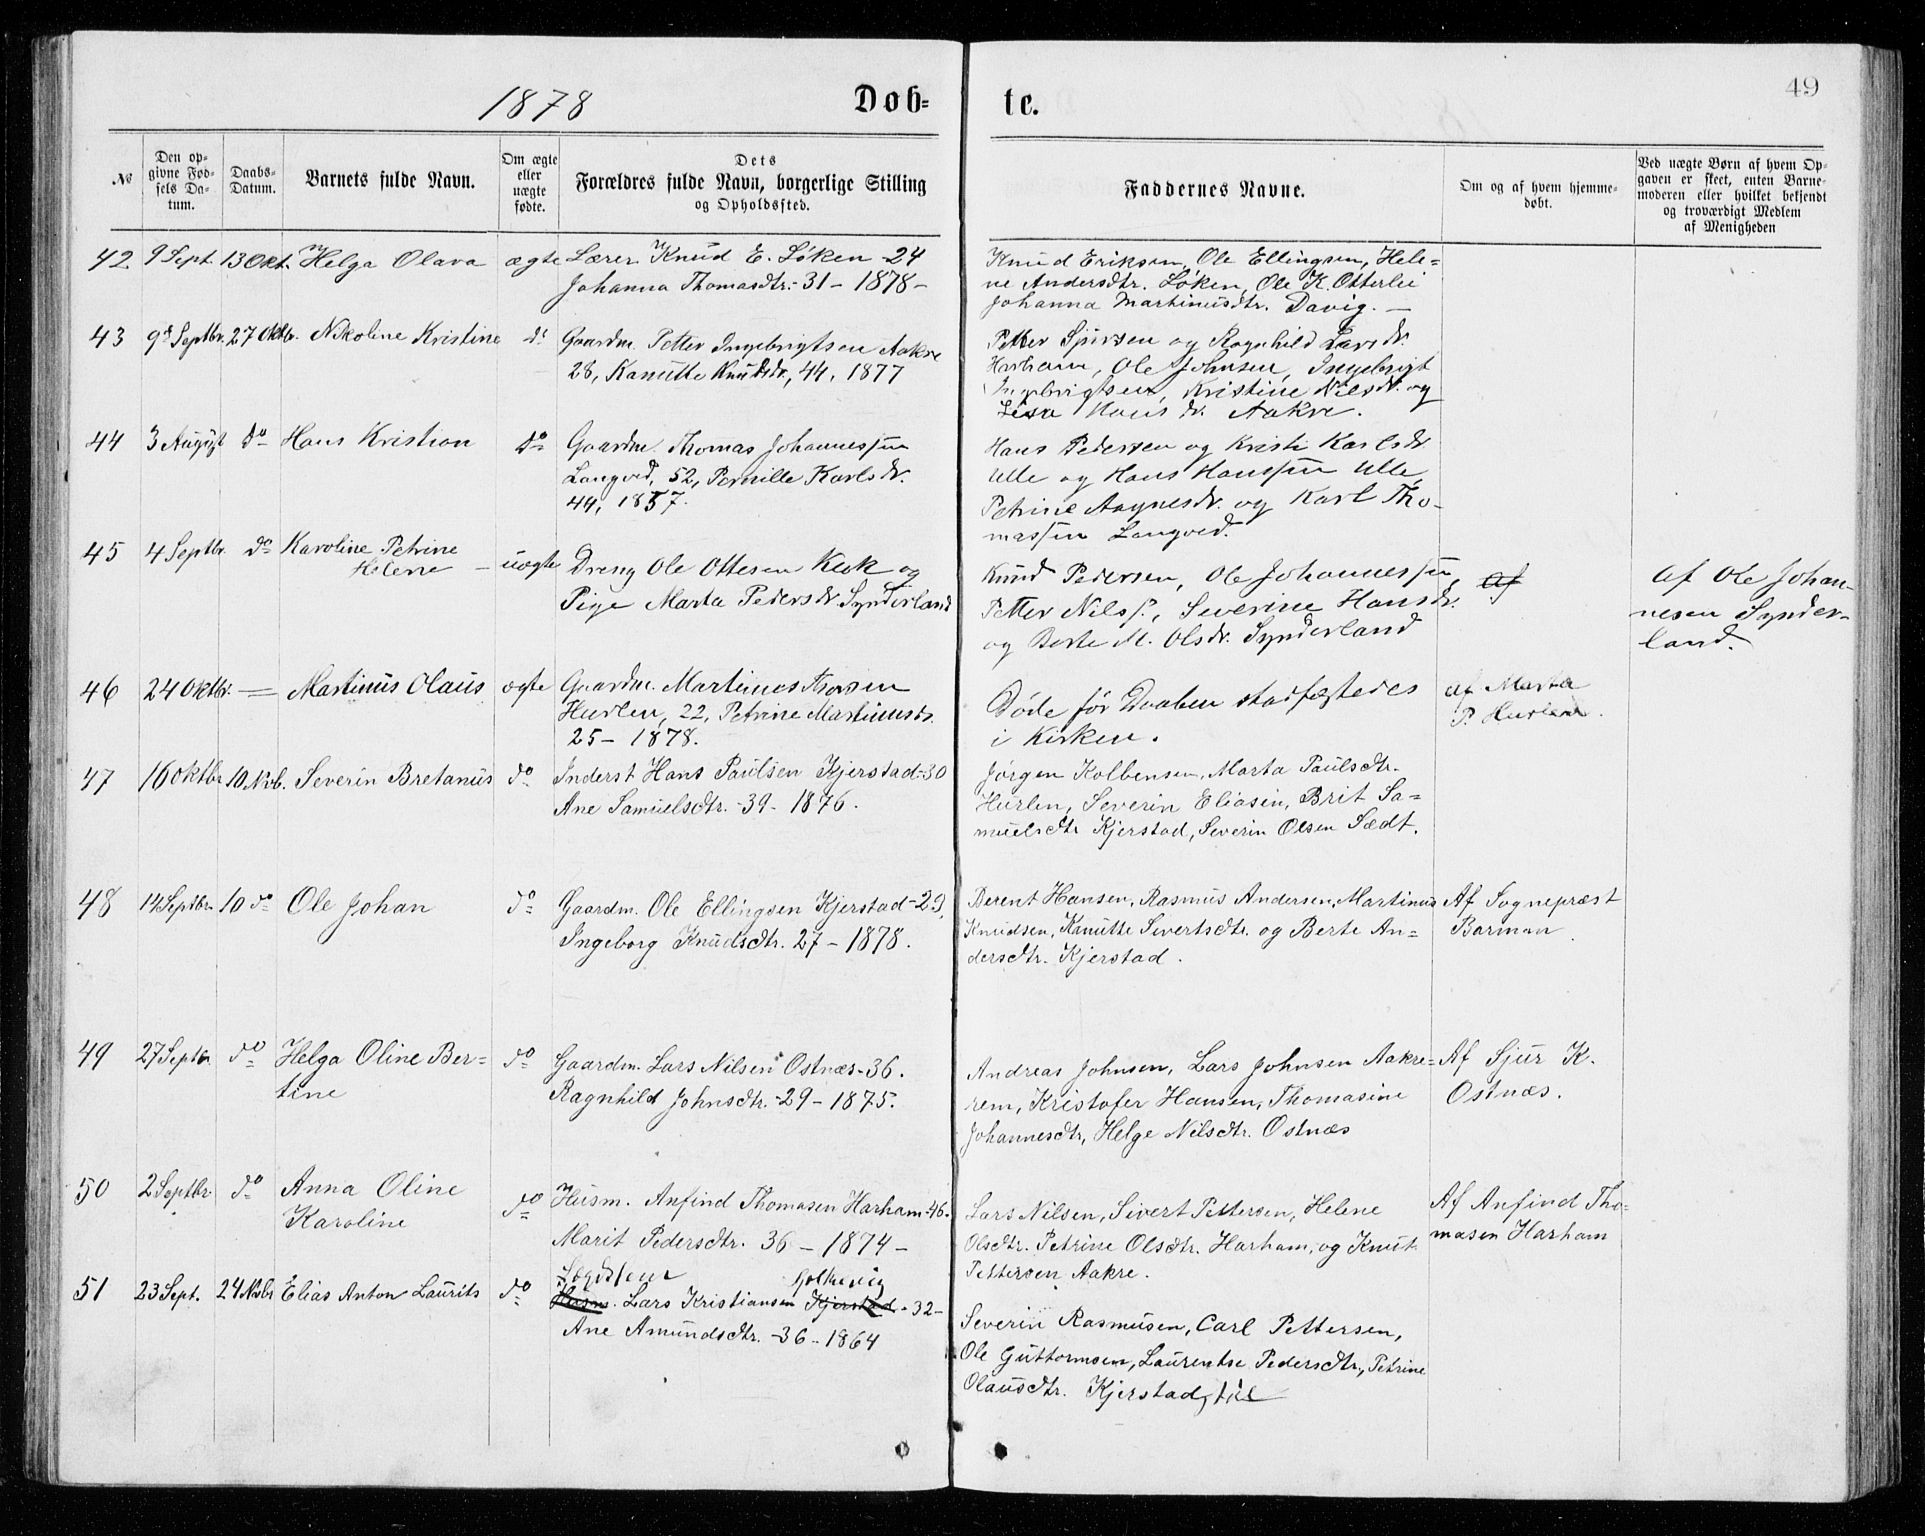 1878 Døb= te. 49
№
Den op-
givne Fød-
sels Da-
tum.
Daabs-
Datum.
Barnets fulde Navn.
Om ægte
eller
uægte
fødte.
Dets
Forældres fulde Navn, borgerlige Stilling
og Opholdssted.
Faddernes Navne.
Om og af hvem hjemme-
døbt.
Ved uægte Børn af hvem Op-
gaven er skeet, enten Barne-
moderen eller hvilket bekjendt
og troværdigt Medlem
af Menigheden
42 9 Sept. 13 Okt. Helga Olava ægte Lærer Knud E. Löken -24
Johanna Thomasdtr. -31- 1878-
Knud Eriksen, Ole Ellingsen, Hele=
ne Andersdtr. Löken, Ole K. Otterlei
Johanna Martinusdtr. Davig. -
43 9d Septbr. 27 Oktbr. Nikoline Kristine do Gaardm. Petter Ingebrigtsen Aakre
28, Kanutte Knudsdr., 44, 1877
Petter Sjursen og Ragnhild Larsdr.
Harham, Ole Johnsen, Ingebrigt
Ingebrigtsen, Kristine Nilsdr. og
Lisa Hansdr. Aakre.
44 3 August do Hans Kristian do Gaardm. Thomas Johannessen
Langved, 52, Pernille Karlsdr.
44, 1857.
Hans Pedersen og Kristi Karlsdr
Ulle og Hans Hanssen Ulle,
Petrine Aagnesdr. og Karl Tho-
massen Langved.
45 4 Septbr. do Karoline Petrine
Helene - uægte Dreng Ole Ottesen Kirk og
Pige Marta Pedersdr Synderland
Knud Pedersen, Ole Johannessen,
Petter Nilss., Severine Hansdr.
og Berte M. Olsdr. Synderland
Af
af Ole Johan-
nesen Synder-
land.
46 24 Oktbr. — Martinus Olaus ægte Gaardm. Martinus Iversen
Hurlen, 22, Petrine Martinusdr.
25 - 1878.
Døde før Daaben stadfæstedes
i Kirken.
af Marta
P. Hurlen.
47 16 Oktbr. 10 Nvb. Severin Bretanus do Inderst Hans Paulsen Kjerstad -30
Ane Samuelsdtr. -39- 1876.
Jørgen Kolbensen, Marta Paulsdtr.
Hurlen, Severin Eliasin, Brit Sa=
muelsdtr Kjerstad, Severin Olsen Sædt.
48 14 Septbr. 10 do Ole Johan do Gaardm. Ole Ellingsen Kjerstad -29,
Ingeborg Knudsdtr. 27 - 1878.
Berent Hansen, Rasmus Andersen, Martinus
Knudsen, Kanutte Sivertsdtr. og Berte An=
dersdtr. Kjerstad.
Af Sognepræst
Barman.
49 27 Septbr. do Helga Oline Ber=
tine do Gaardm. Lars Nilsen Ostnæs -36.
Ragnhild Johnsdtr. -29- 1875.
Andreas Johnsen, Lars Johnsen Aakre=
rem, Kristofer Hansen, Thomasine
Johannesdtr, Helge Nilsdtr. Ostnæs
Af Sjur K.
Ostnæs.
50 2 Septbr. do Anna Oline
Karoline do Husm. Anfind Thomasen Harham -46.
Marit Pedersdtr. 36 - 1874 -
Lars Nilsen, Sivert Pettersen, Helene
Olsdtr. Petrine Olsdtr. Harham, og Knut
Pettersen Aakre.
Af Anfind Tho=
masen Harham
51 23 Sept. 24 Nvbr Elias Anton Laurits do
Husm. Lars Kristiansen Kjerstad -32-
Ane Amundsdtr. -36- 1864
Severin Rasmusen, Carl Pettersen,
Ole Guttormsen, Laurentse Pedersdtr., Petrine
Olausdtr. Kjerstad,